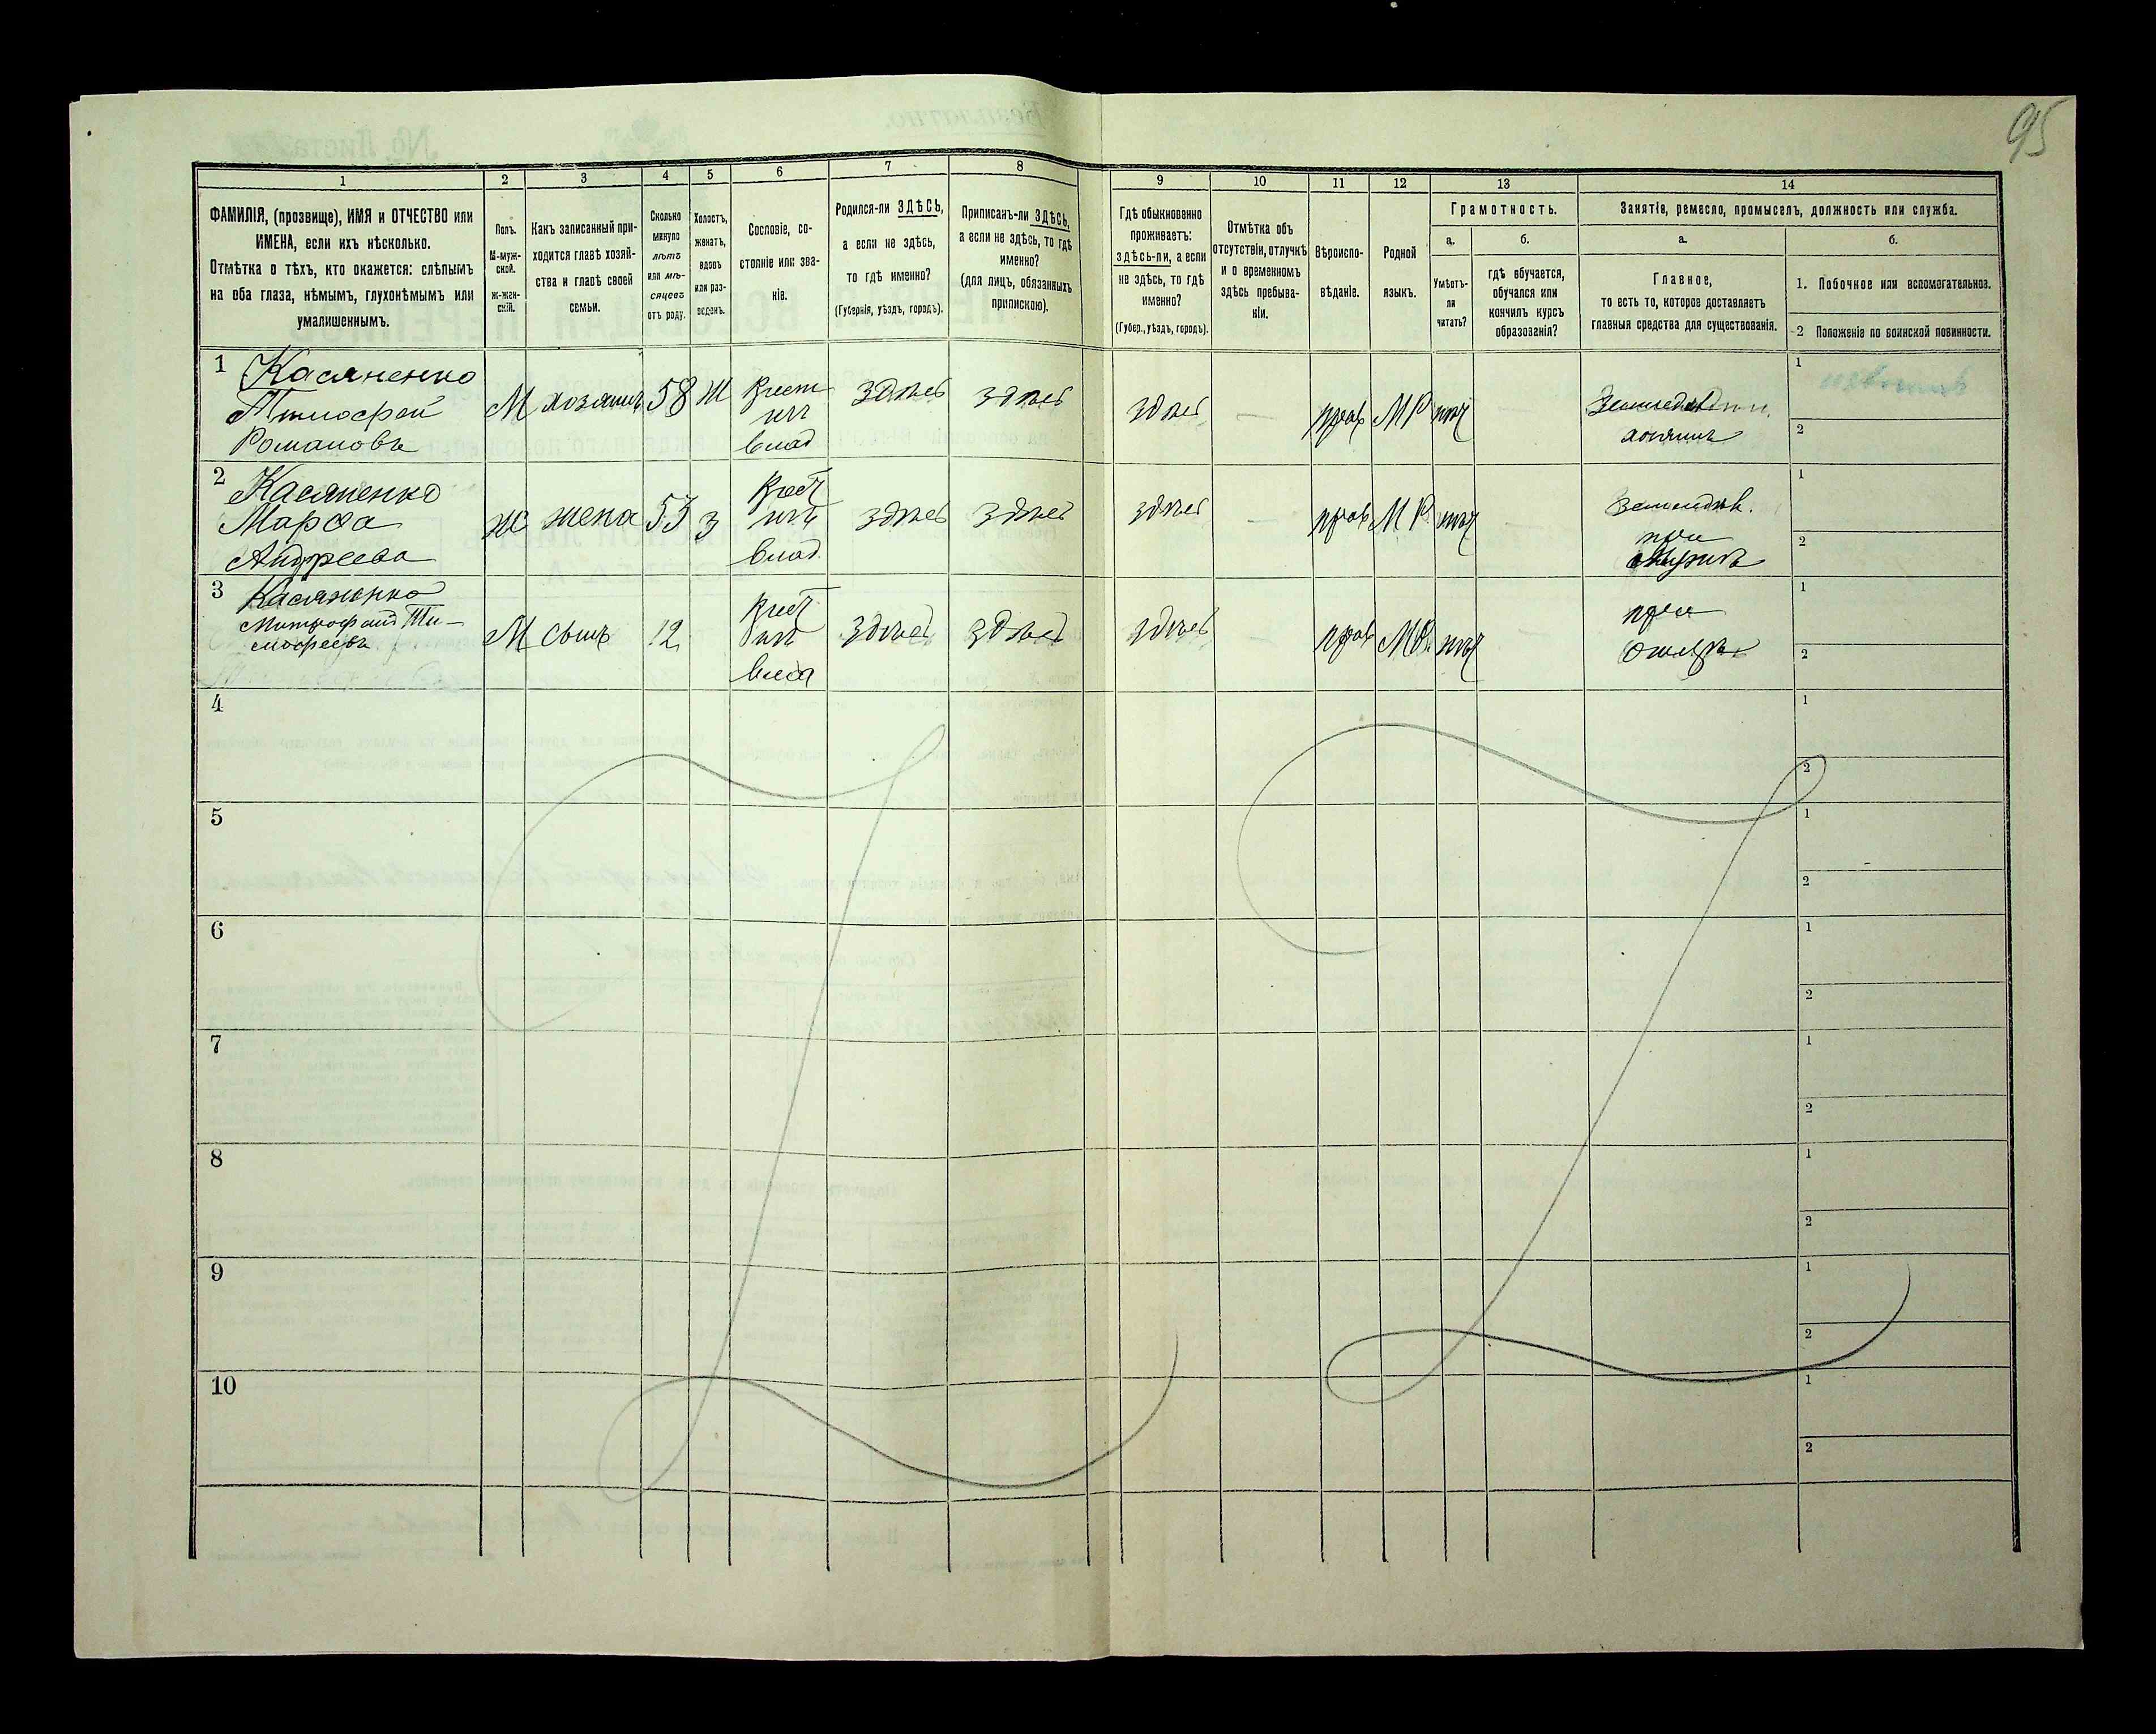 95
1 2 3 4 5 6 7 8 9 10 11 12 13 14
ФАМИЛІЯ, (прозвище), ИМЯ и ОТЧЕСТВО или
ИМЕНА, если ихъ нѣсколько.
Отмѣтка о тѣхъ, кто окажется: слѣпымъ
на оба глаза, нѣмымъ, глухонѣмымъ или
умалишеннымъ.
Полъ.
М-муж-
ской.
ж-жен-
скій.
Какъ записанный при-
ходится главѣ хозяй-
ства и главѣ своей
семьи.
Сколько
минуло
лѣтъ
или мѣ-
сяцевъ
отъ роду.
Холостъ,
женатъ,
вдовъ
или раз-
веденъ.
Сословіе, со-
стояніе или зва-
ніе.
Родился-ли ЗДѢСЬ,
а если не здѣсь,
то гдѣ именно?
(Губернія, уѣздъ, городъ).
Приписанъ-ли ЗДѢСЬ,
а если не здѣсь, то гдѣ
именно?
(для лицъ, обязанныхъ
припискою).
Гдѣ обыкновенно
проживаетъ:
здѣсь-ли, а если
не здѣсь, то гдѣ
именно?
(Губер., уѣздъ, городъ).
Отмѣтка объ
отсутствіи, отлучкѣ
и о временномъ
здѣсь пребыва-
ніи.
Вѣроиспо-
вѣданіе.
Родной
языкъ.
Грамотность.
а.
Умѣетъ-
ли
читать?
б.
гдѣ обучается,
обучался или
кончилъ курсъ
образованія?
Занятіе, ремесло, промыселъ, должность или служба.
а.
Главное,
то есть то, которое доставляетъ
главныя средства для существованія.
б.
1. Побочное или вспомогательное.
2 Положеніе по воинской повинности.
1 Касяненко
Тимофей
Романовъ
М хозяинъ 58 Ж
Крест
влад
здѣсь здѣсь здѣсь — прав М Р нѣт
хозяинъ
1
2
2 Касяненко
Марфа
Андреева
Ж жена 53 З
Крест
влад.
здѣсь здѣсь здѣсь — прав М Р нѣт
Земледѣл.
при
мужѣ
1
2
3 Касяненко
Митрофанъ Ти-
мофеевъ
М сынъ 12
Крест
влад
здѣсь здѣсь здѣсь прав М Р. нѣт
при
отцѣ
1
2
4 1
2
5 1
2
6 1
2
7 1
2
8 1
2
9 1
2
10 1
2